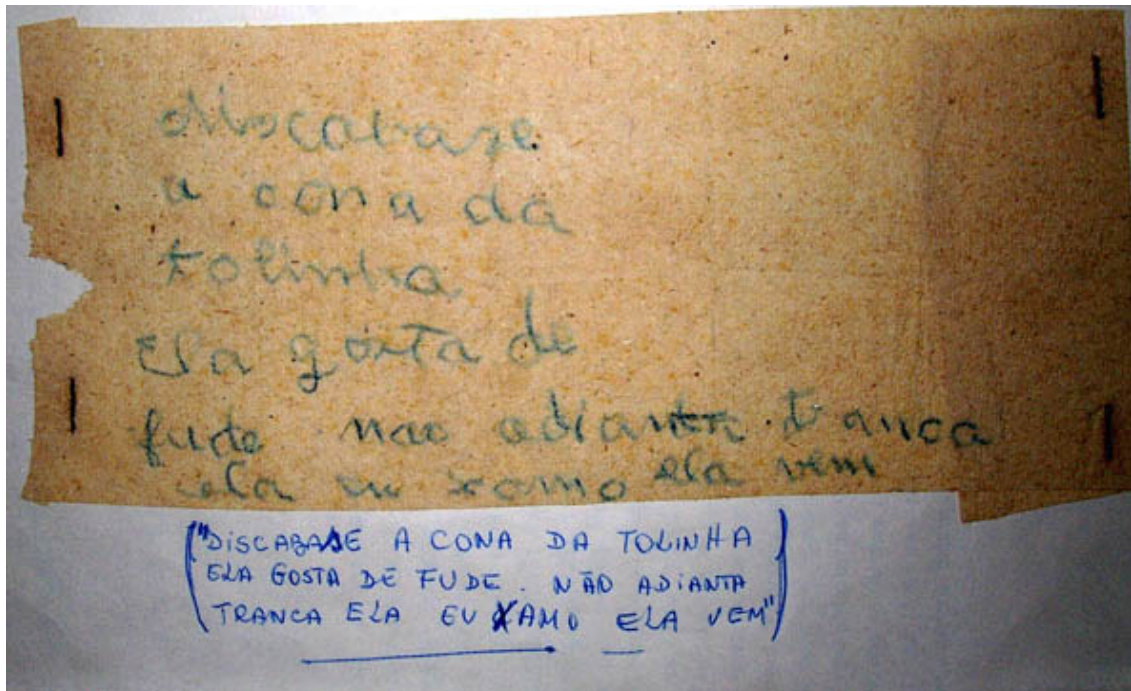 discabaze
a cona da
tolinha
Ela gosta de
fude nao adianta tranca
ela eu xamo ela vem
("DISCABASE A CONA DA TOLINHA
ELA GOSTA DE FUDE. NÃO ADIANTA
TRANCA ELA EU XAMO ELA VEM")